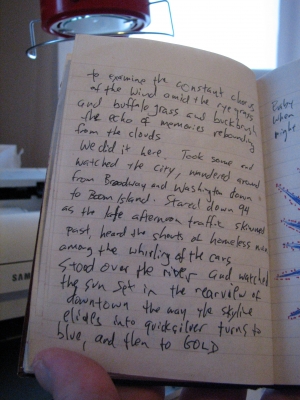 to examine the constant chorus
of the wind amidst the rye grass
and buffalo grass and buckbrush
the echo of memories rebounding
from the clouds
We did it here. Took some and
watched the city, wandered around
from Broadway and Washington down
to Boom Island. Stared down 94
as the late afternoon traffic skimmed
past, heard the shouts of homeless men
among the whirling of the cars
Stood over the river and watched
the sun set in the rearview of
downtown the way the skyline
elides into quicksilver turns to
blue, and then to GOLD
when
night
SAM